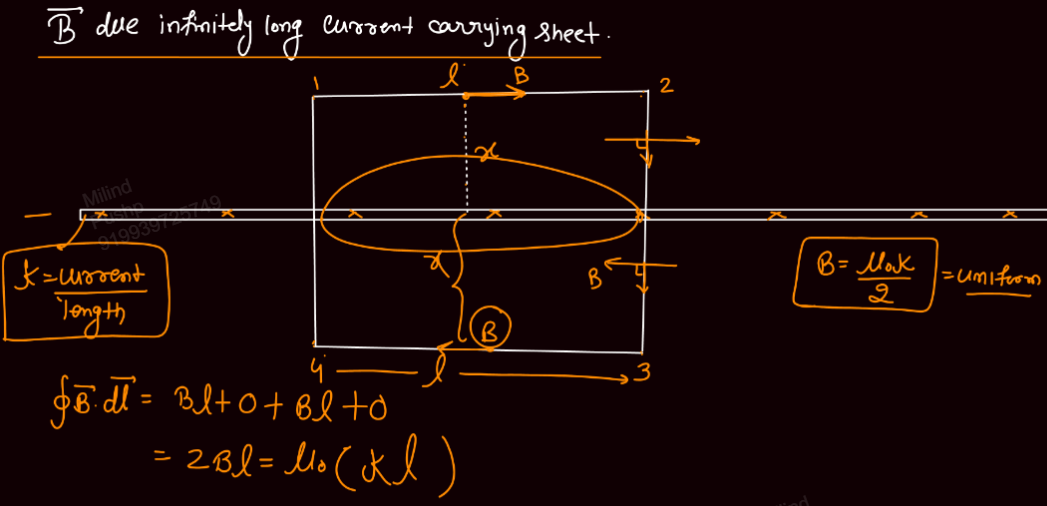 B⃗ due infinitely long current carrying sheet.
1 l B 2
x
Milind
Pushp
919939725749
K = current/length
x
B
B = μ₀K/2 = uniform
B
4 l 3
∮B⃗.dl⃗ = Bl + 0 + Bl + 0
= 2Bl = μ₀(Kl)